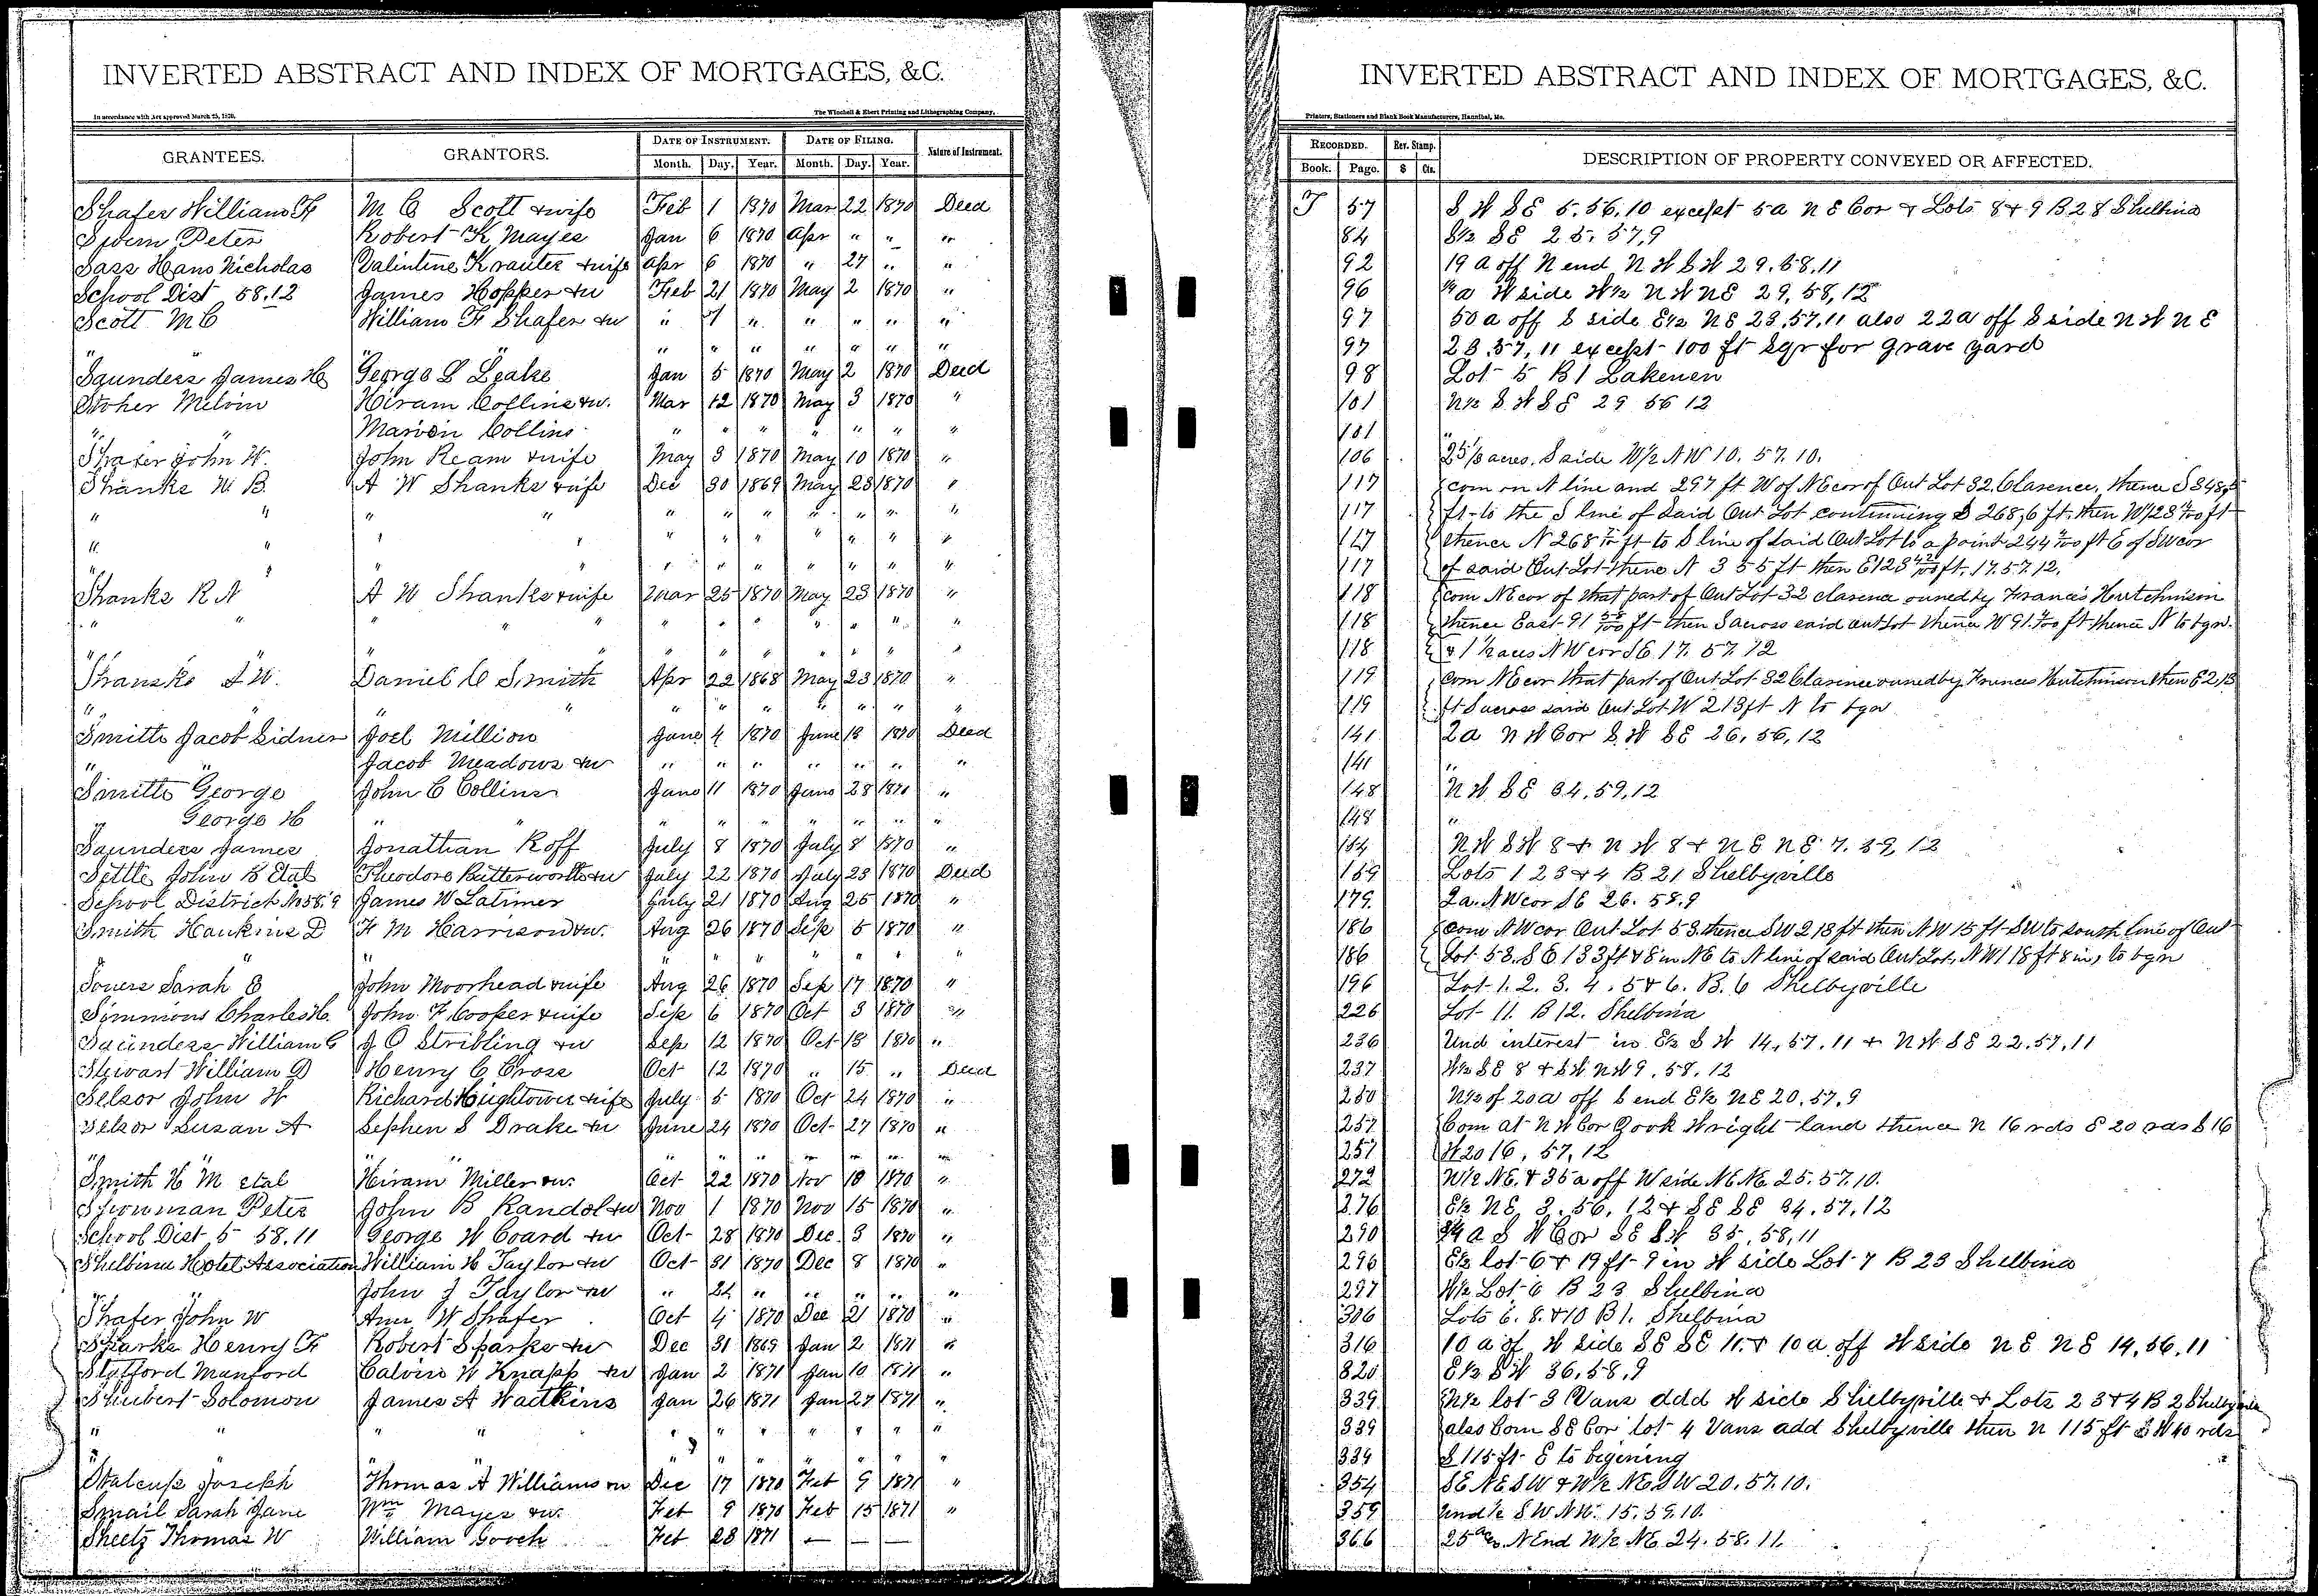 INVERTED ABSTRACT AND INDEX OF MORTGAGES, &C.
In accordance with Act approved March 25, 1870.
The Winchell & Ebert Printing and Lithographing Company,
GRANTEES. GRANTORS. DATE OF INSTRUMENT. DATE OF FILING. Nature of Instrument.
Month. Day. Year. Month. Day. Year.
Shafer William F M C Scott & wife Feb 1 1870 Mar 22 1870 Deed
Peter Robert K Mayes Jan 6 1870 Apr " " "
Sass Hans Nicholas Valintine Krauter & wife Apr 6 1870 " 27 " "
School Dist 58.12 James Hopper & w Feb 21 1870 May 2 1870 "
Scott M C William F Shafer & w " 7 " " " " "
" " " " " " " " " " "
Saunders James H George L Leake Jan 5 1870 May 2 1870 Deed
Stoker Melvin Hiram Collins & w. Mar 12 1870 May 3 1870 "
" " Marion Collins " " " " " " "
Shafer John W. John Ream & wife May 3 1870 May 10 1870 "
Shanks W. B. A W Shanks & wife Dec 30 1869 May 23 1870 "
" " " " " " " " " " "
" " " " " " " " " " "
" " " " " " " " " " "
Shanks R N A W Shanks & wife Mar 25 1870 May 23 1870 "
" " " " " " " " " " " "
" " " " " " " " " "
Shansks A W. Daniel C Smith Apr 22 1868 May 23 1870 "
" " " " " " " " " " "
Smith Jacob Sidner Joel Million June 4 1870 June 18 1870 Deed
" " Jacob Meadows & w " " " " " " "
Smith George John C Collins June 11 1870 June 28 1870 "
" George H " " " " " " " " "
Saunders James Jonathan Roff July 8 1870 July 8 1870 "
Settle John B Etal Theodore Butterworth & w July 22 1870 July 23 1870 Deed
School District No 58.9 James W Latimer July 21 1870 Aug 25 1870 "
Smith Hankins D F M Harrison & w. Aug 26 1870 Sep 5 1870 "
" " " " " " " " "
Sarah E John Moorhead & wife Aug 26 1870 Sep 17 1870 "
Simmions Charles H. John F Cooper & wife Sep 6 1870 Oct 3 1870 "
Saunders William G J O Stribling & w Sep 12 1870 Oct 18 1870 "
Stewart William D Henry C Cross Oct 12 1870 " 15 " Deed
Selsor John W Richard Hightower & wife July 5 1870 Oct 24 1870 "
Selsor Susan A Sephen S Drake & w June 24 1870 Oct 27 1870 "
" " " " " " " " " "
Smith H M etal Hiram Miller & w. Oct 22 1870 Nov 10 1870 "
Showman Peter John B Randol & w Nov 1 1870 Nov 15 1870 "
School Dist 5 58.11 George W Coard & w Oct 28 1870 Dec 3 1870 "
Shelbina Hotel Association William H Taylor & w Oct 31 1870 Dec 8 1870 "
" " John J Taylor & w " 24 " " " " "
Shafer John W Ann W Shafer Oct 4 1870 Dec 21 1870 "
Sparks Henry F Robert Sparks & w Dec 31 1869 Jan 2 1871 "
Stafford Manford Calvin W Knapp & w Jan 2 1871 Jan 10 1871 "
Shubert Solomon James A Watkins Jan 26 1871 Jan 27 1871 "
" " " " " " " " " " "
" " " " " " " " "
Stalcup Joseph Thomas A Williamson Dec 17 1870 Feb 9 1871 "
Smail Sarah Jane Wm Mayes & w. Feb 9 1870 Feb 15 1871 "
Sheetz Thomas W William Gooch Feb 28 1871 — — —
INVERTED ABSTRACT AND INDEX OF MORTGAGES, &C.
Printers, Stationers and Blank Book Manufacturers, Hannibal, Mo.
RECORDED. Rev. Stamp. DESCRIPTION OF PROPERTY CONVEYED OR AFFECTED.
Book. Page. $ Cts.
T 57 S W SE 5.56.10 except 5a NE Cor & Lots 8 & 9 B 28 Shelbina
84 S½ SE 25.57,9
92 19 a off N end N W S W 29.58.11
96 a W side W½ N W NE 29,58,12
97 50 a off S side E½ NE 23,57,11 also 22a off S side N W N E
97 23.57,11 except 100 ft Sqr for grave yard
98 Lot 5 B 1 Lakenen
101 N½ S W SE 29 56 12
101 "
106 25 1/3 acres. S side W/2 N W 10. 57. 10.
117 com on N line and 297 ft W of NE cor of Out Lot 32. Clarence, thence S 348,5
117 ft to the S line of said Out Lot continuing S 268,6 ft. then W 123 ft
117 thence N 268 ft to S line of said Out Lot to a point 244 ft E of SW cor
117 of said Out Lot thence N 355 ft then E 123 ft. 17.57.12.
118 com NE cor of that part of Out Lot 32 clarence owned by Frances Hutchinson
118 thence East 91 58/100 ft then S across said out lot thence W 91 ft thence N to bgn.
118 & 1 ½ acres NW cor SE 17. 57. 12
119 com NE cor that part of Out Lot 32 Clarence owned by Frances Hutchinson then E 213
119 ft S across said Out Lot W 213 ft N to bgn
141 2a N W Cor S W SE 26,56,12
141 "
148 N W SE 34.59,12
148 "
154 N W S W 8 & N W 8 & N E N E 7. 59, 12
159 Lots 1 2 3 & 4 B. 21 Shelbyville
179 2a. NW cor SE 26. 58.9
186 com NW cor Out Lot 53. thence SW 213 ft then NW 15 ft SW to south line of Out
186 Lot 53. SE 133 ft & 8 in NE to N line of said Out Lot, NW 118 ft 8 in, to bgn
196 Lot 1. 2. 3. 4. 5 & 6. B. 6 Shelbyville
226 Lot 11. B 12. Shelbina
236 Und interest in E½ S W 14,57.11 & N W SE 22.57,11
237 W½ SE 8 & S W N W 9. 58. 12
250 N½ of 20a off S end E½ NE 20,57,9
257 Com at N W Cor Zook Wright land thence N 16 rds E 20 rds S 16
257 W 20 16, 57, 12
272 W/2 NE. & 35 a off W side NE NE 25.57.10.
276 E½ NE 3. 56. 12 & SE SE 34,57,12
290 a S W Cor SE S W 35,58,11
296 E½ lot 6 & 19 ft 9 in W side Lot 7 B 23 Shelbina
297 W½ Lot 6 B 23 Shelbina
306 Lots 6. 8. & 10 B 1. Shelbina
316 10 a of W side SE SE 11. & 10 a off W side NE NE 14,56,11
320 E½ S W 36,58,9
339 N½ lot 3 Vans add W side Shelbyville & Lots 2 3 & 4 B 2 Shelbyville
339 also Com SE Cor lot 4 Vans add Shelbyville then N 115 ft W 40 rds
339 S 115 ft E to begining
354 SE NE SW & W½ NE SW 20.57.10.
359 Und ½ S W N W. 15.59.10.
366 25 acs. N End W/2 NE 24.58.11.